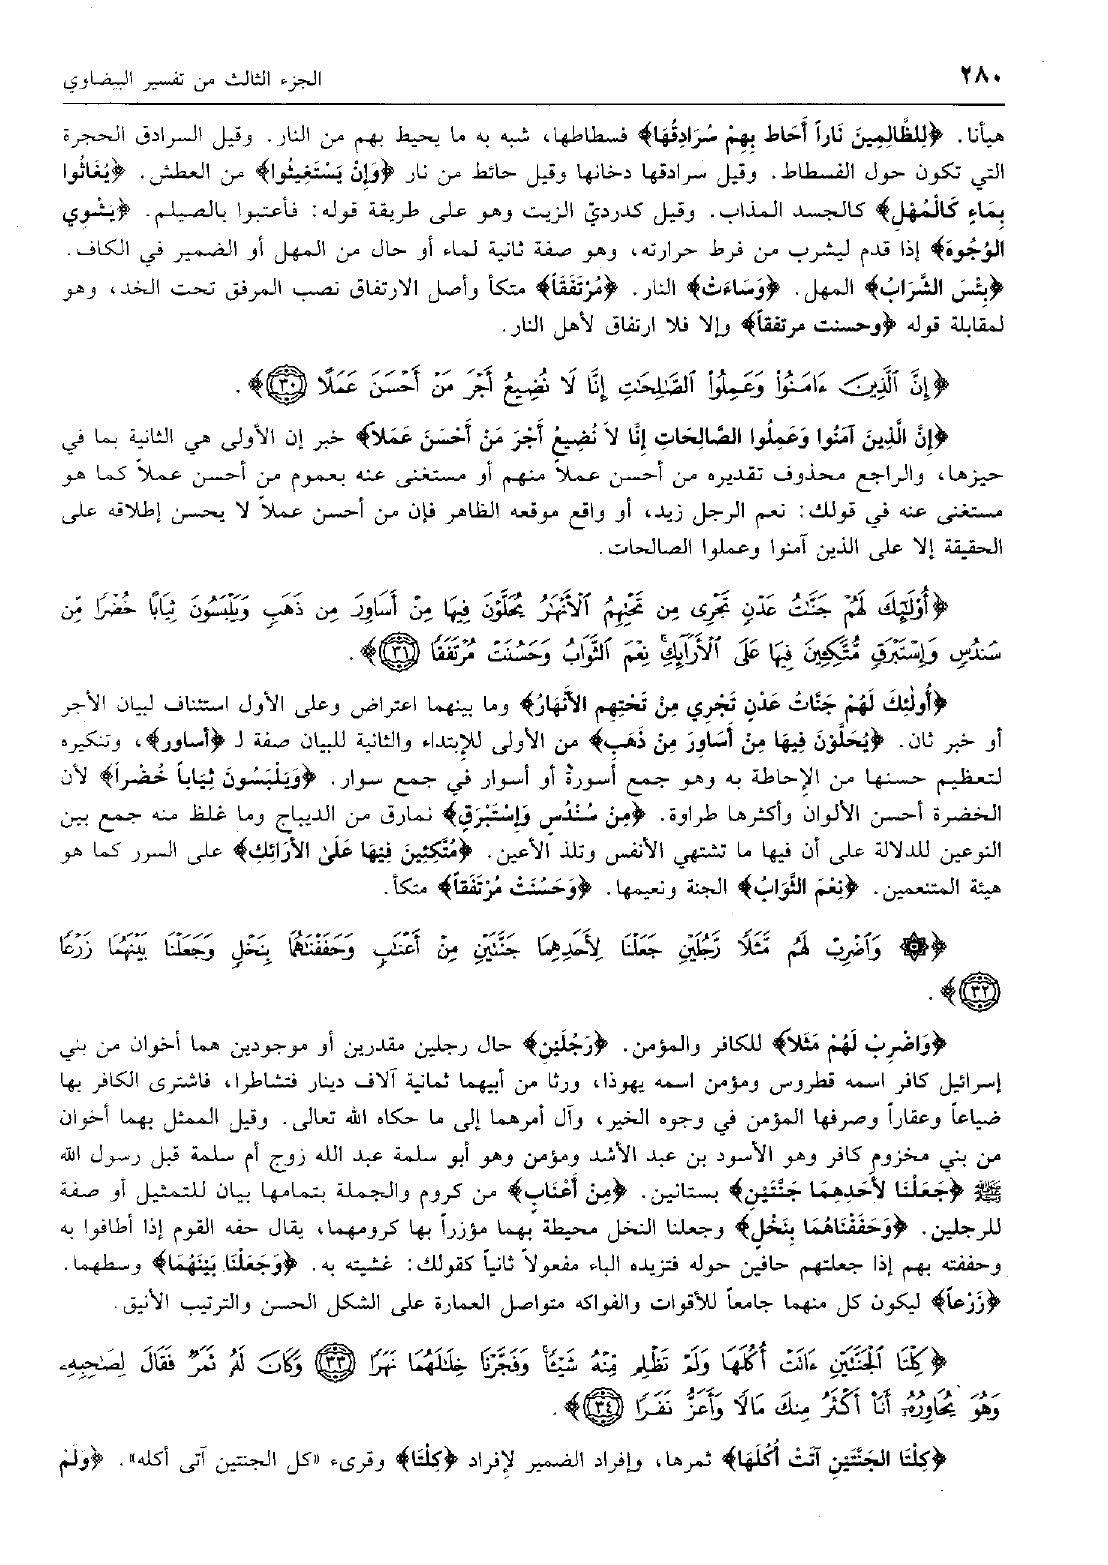 ٢٨٠
الجزء الثالث من تفسير البيضاوي
هيأنا. ﴿لِلظَّالِمِينَ نَاراً أَحَاطَ بِهِمْ سُرَادِقُهَا﴾ فسطاطها، شبه به ما يحيط بهم من النار. وقيل السرادق الحجرة
التي تكون حول الفسطاط. وقيل سرادقها دخانها وقيل حائط من نار ﴿وَإِنْ يَسْتَغِيثُوا﴾ من العطش. ﴿يُغَاثُوا
بِمَاءٍ كَالْمُهْلِ﴾ كالجسد المذاب. وقيل كدرديّ الزيت وهو على طريقة قوله: فأعتبوا بالصيلم. ﴿يَشْوِي
الوُجُوهَ﴾ إذا قدم ليشرب من فرط حرارته، وهو صفة ثانية لماء أو حال من المهل أو الضمير في الكاف.
﴿بِئْسَ الشَّرَابُ﴾ المهل. ﴿وَسَاءَتْ﴾ النار. ﴿مُرْتَفَقاً﴾ متكأ وأصل الارتفاق نصب المرفق تحت الخد، وهو
لمقابلة قوله ﴿وحسنت مرتفقاً﴾ وإلا فلا ارتفاق لأهل النار.
﴿إِنَّ ٱلَّذِينَ ءَامَنُوا۟ وَعَمِلُوا۟ ٱلصَّٰلِحَٰتِ إِنَّا لَا نُضِيعُ أَجْرَ مَنْ أَحْسَنَ عَمَلًا ٣٠﴾.
﴿إِنَّ الَّذِينَ آمَنُوا وَعَمِلُوا الصَّالِحَاتِ إِنَّا لاَ نُضِيعُ أَجْرَ مَنْ أَحْسَنَ عَمَلاً﴾ خبر إن الأولى هي الثانية بما في
حيزها، والراجع محذوف تقديره من أحسن عملاً منهم أو مستغنى عنه بعموم من أحسن عملاً كما هو
مستغنى عنه في قولك: نعم الرجل زيد، أو واقع موقعه الظاهر فإن من أحسن عملاً لا يحسن إطلاقه على
الحقيقة إلا على الذين آمنوا وعملوا الصالحات.
﴿أُو۟لَٰٓئِكَ لَهُمْ جَنَّٰتُ عَدْنٍ تَجْرِى مِن تَحْتِهِمُ ٱلْأَنْهَٰرُ يُحَلَّوْنَ فِيهَا مِنْ أَسَاوِرَ مِن ذَهَبٍ وَيَلْبَسُونَ ثِيَابًا خُضْرًا مِّن
سُندُسٍ وَإِسْتَبْرَقٍ مُّتَّكِئِينَ فِيهَا عَلَى ٱلْأَرَآئِكِ نِعْمَ ٱلثَّوَابُ وَحَسُنَتْ مُرْتَفَقًا ٣١﴾.
﴿أُولَئِكَ لَهُمْ جَنَّاتُ عَدْنٍ تَجْرِي مِنْ تَحْتِهِم الأَنْهَارُ﴾ وما بينهما اعتراض وعلى الأول استئناف لبيان الأجر
أو خبر ثان. ﴿يُحَلَّوْنَ فِيهَا مِنْ أَسَاوِرَ مِنْ ذَهَبٍ﴾ من الأولى للإبتداء والثانية للبيان صفة لـ ﴿أساور﴾، وتنكيره
لتعظيم حسنها من الإحاطة به وهو جمع أسورة أو أسوار في جمع سوار. ﴿وَيَلْبَسُونَ ثِيَاباً خُضْراً﴾ لأن
الخضرة أحسن الألوان وأكثرها طراوة. ﴿مِنْ سُنْدُسٍ وَإِسْتَبْرَقٍ﴾ نمارق من الديباج وما غلظ منه جمع بين
النوعين للدلالة على أن فيها ما تشتهي الأنفس وتلذ الأعين. ﴿مُتَّكِئِينَ فِيهَا عَلَى الأَرَائِكِ﴾ على السرر كما هو
هيئة المتنعمين. ﴿نِعْمَ الثَّوَابُ﴾ الجنة ونعيمها. ﴿وَحَسُنَتْ مُرْتَفَقاً﴾ متكأ.
﴿۞ وَٱضْرِبْ لَهُم مَّثَلًا رَّجُلَيْنِ جَعَلْنَا لِأَحَدِهِمَا جَنَّتَيْنِ مِنْ أَعْنَٰبٍ وَحَفَفْنَٰهُمَا بِنَخْلٍ وَجَعَلْنَا بَيْنَهُمَا زَرْعًا
٣٢﴾.
﴿وَاضْرِبْ لَهُمْ مَثَلاً﴾ للكافر والمؤمن. ﴿رَجُلَيْنِ﴾ حال رجلين مقدرين أو موجودين هما أخوان من بني
إسرائيل كافر اسمه قطروس ومؤمن اسمه يهوذا، ورثا من أبيهما ثمانية آلاف دينار فتشاطرا، فاشترى الكافر بها
ضياعاً وعقاراً وصرفها المؤمن في وجوه الخير، وآل أمرهما إلى ما حكاه الله تعالى. وقيل الممثل بهما أخوان
من بني مخزوم كافر وهو الأسود بن عبد الأشد ومؤمن وهو أبو سلمة عبد الله زوج أم سلمة قبل رسول الله
ﷺ ﴿جَعَلْنَا لأَحَدِهِمَا جَنَّتَيْنِ﴾ بستانين. ﴿مِنْ أَعْنَابٍ﴾ من كروم والجملة بتمامها بيان للتمثيل أو صفة
للرجلين. ﴿وَحَفَفْنَاهُمَا بِنَخْلٍ﴾ وجعلنا النخل محيطة بهما مؤزراً بها كرومهما، يقال حفه القوم إذا أطافوا به
وحففته بهم إذا جعلتهم حافين حوله فتزيده الباء مفعولاً ثانياً كقولك: غشيته به. ﴿وَجَعَلْنَا بَيْنَهُمَا﴾ وسطهما.
﴿زَرْعاً﴾ ليكون كل منهما جامعاً للأقوات والفواكه متواصل العمارة على الشكل الحسن والترتيب الأنيق.
﴿كِلْتَا ٱلْجَنَّتَيْنِ ءَاتَتْ أُكُلَهَا وَلَمْ تَظْلِم مِّنْهُ شَيْئًا وَفَجَّرْنَا خِلَٰلَهُمَا نَهَرًا ٣٣ وَكَانَ لَهُۥ ثَمَرٌ فَقَالَ لِصَٰحِبِهِۦ
وَهُوَ يُحَاوِرُهُۥٓ أَنَا۠ أَكْثَرُ مِنكَ مَالًا وَأَعَزُّ نَفَرًا ٣٤﴾.
﴿كِلْتَا الجَنَّتَيْنِ آتَتْ أُكُلَهَا﴾ ثمرها، وإفراد الضمير لإفراد ﴿كِلْتَا﴾ وقرىء «كل الجنتين آتى أكله». ﴿وَلَمْ